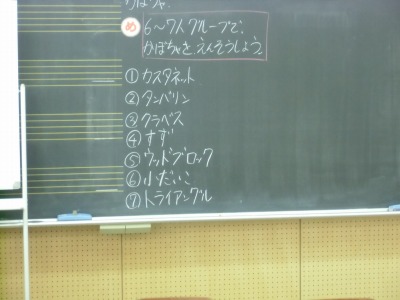 かぼちゃ
め
6〜7人グループで、
かぼちゃを えんそうしよう。
①カスタネット
②タンバリン
③クラベス
④すず
⑤ウッドブロック
⑥小だいこ
⑦トライアングル